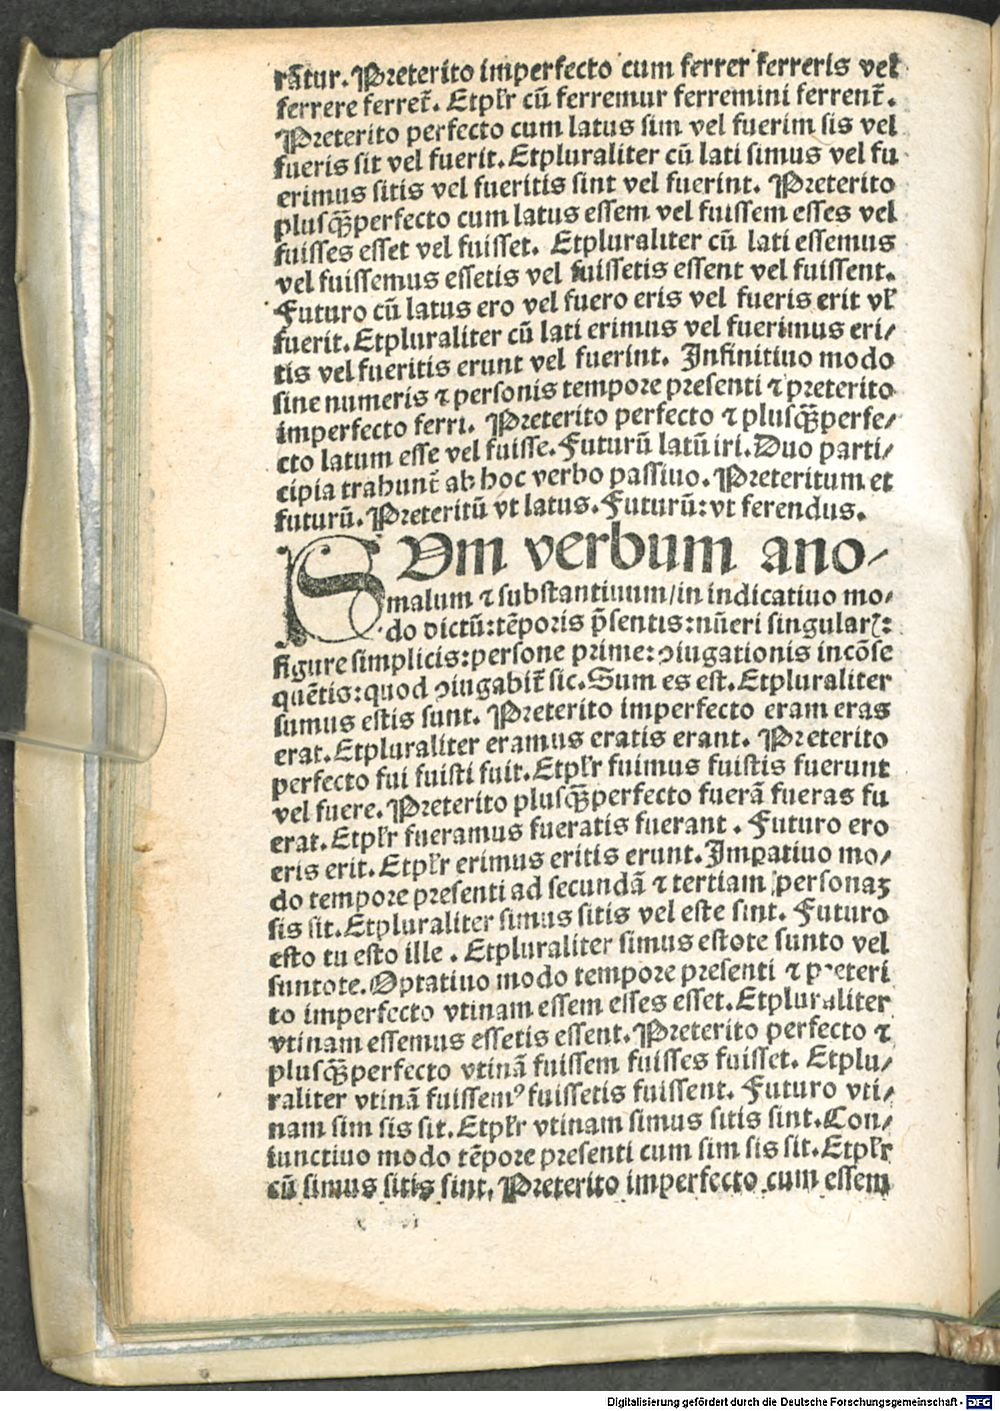 rātur. Preterito imperfecto cum ferrer ferreris vel
ferrere ferret̄. Etpłr cū ferremur ferremini ferrent̄.
Preterito perfecto cum latus sim vel fuerim sis vel
fueris sit vel fuerit. Etpluraliter cū lati simus vel fu
erimus sitis vel fueritis sint vel fuerint. Preterito
plusq̄ȝperfecto cum latus essem vel fuissem esses vel
fuisses esset vel fuisset. Etpluraliter cū lati essemus
vel fuissemus essetis vel fuissetis essent vel fuissent.
Futuro cū latus ero vel fuero eris vel fueris erit vł
fuerit. Etpluraliter cū lati erimus vel fuerimus eri/
tis vel fueritis erunt vel fuerint. Infinitiuo modo
sine numeris ⁊ personis tempore presenti ⁊ preterito
imperfecto ferri. Preterito perfecto ⁊ plusq̄ȝperfe/
cto latum esse vel fuisse. Futurū latū iri. Duo parti/
cipia trahunt̄ ab hoc verbo passiuo. Preteritum et
futurū. Preteritū vt latus. Futurū: vt ferendus.
SUm verbum ano-
malum ⁊ substantiuum/in indicatiuo mo-
do dictū: tēporis p̄sentis: nūeri singularꝫ:
figure simplicis: persone prime: ꝯiugationis incōse
quētis: quod ꝯiugabit̄ sic. Sum es est. Etpluraliter
sumus estis sunt. Preterito imperfecto eram eras
erat. Etpluraliter eramus eratis erant. Preterito
perfecto fui fuisti fuit. Etpłr fuimus fuistis fuerunt
vel fuere. Preterito plusq̄ȝperfecto fuerā fueras fu
erat. Etpłr fueramus fueratis fuerant. Futuro ero
eris erit. Etpłr erimus eritis erunt. Imꝑatiuo mo/
do tempore presenti ad secundā ⁊ tertiam personaȝ
sis sit. Etpluraliter simus sitis vel este sint. Futuro
esto tu esto ille. Etpluraliter simus estote sunto vel
suntote. Optatiuo modo tempore presenti ⁊ preteri
to imperfecto vtinam essem esses esset. Etpluraliter
vtinam essemus essetis essent. Preterito perfecto ⁊
plusq̄ȝperfecto vtinā fuissem fuisses fuisset. Etplu/
raliter vtinā fuissemꝰ fuissetis fuissent. Futuro vti/
nam sim sis sit. Etpłr vtinam simus sitis sint. Con/
iunctiuo modo tēpore presenti cum sim sis sit. Etpłr
cū simus sitis sint. Preterito imperfecto cum essem
Digitalisierung gefördert durch die Deutsche Forschungsgemeinschaft - DFG